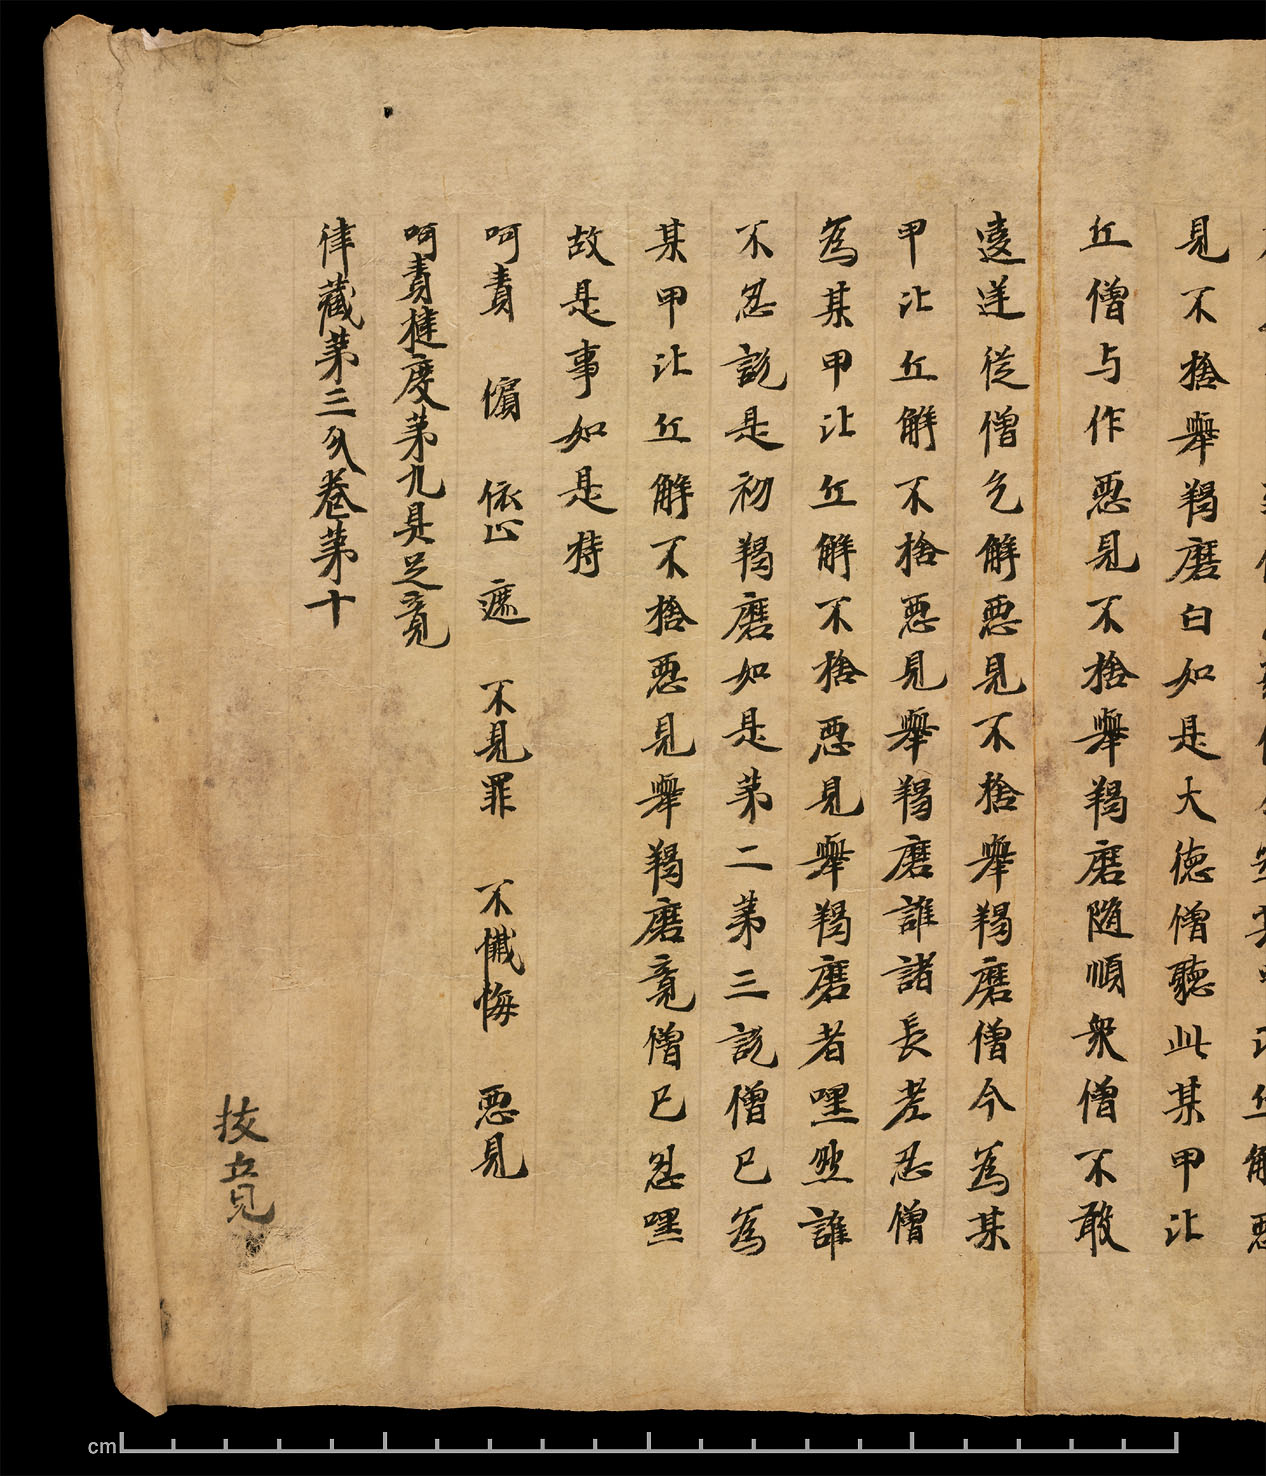 見不捨舉羯磨白如是大德僧聽此某甲比
丘僧与作惡見不捨舉羯磨隨順衆僧不敢
違逆從僧乞解惡見不捨舉羯磨僧今為某
甲比丘解不捨惡見舉羯磨誰諸長老忍僧
為某甲比丘解不捨惡見舉羯磨者嘿然誰
不忍說是初羯磨如是第二第三說僧已為
某甲比丘解不捨惡見舉羯磨竟僧已忍嘿
故是事如是持
呵責 擯 依止 遮 不見罪 不懺悔 惡見
呵責揵度第九具足竟
律藏第三分卷第十
挍竟
cm